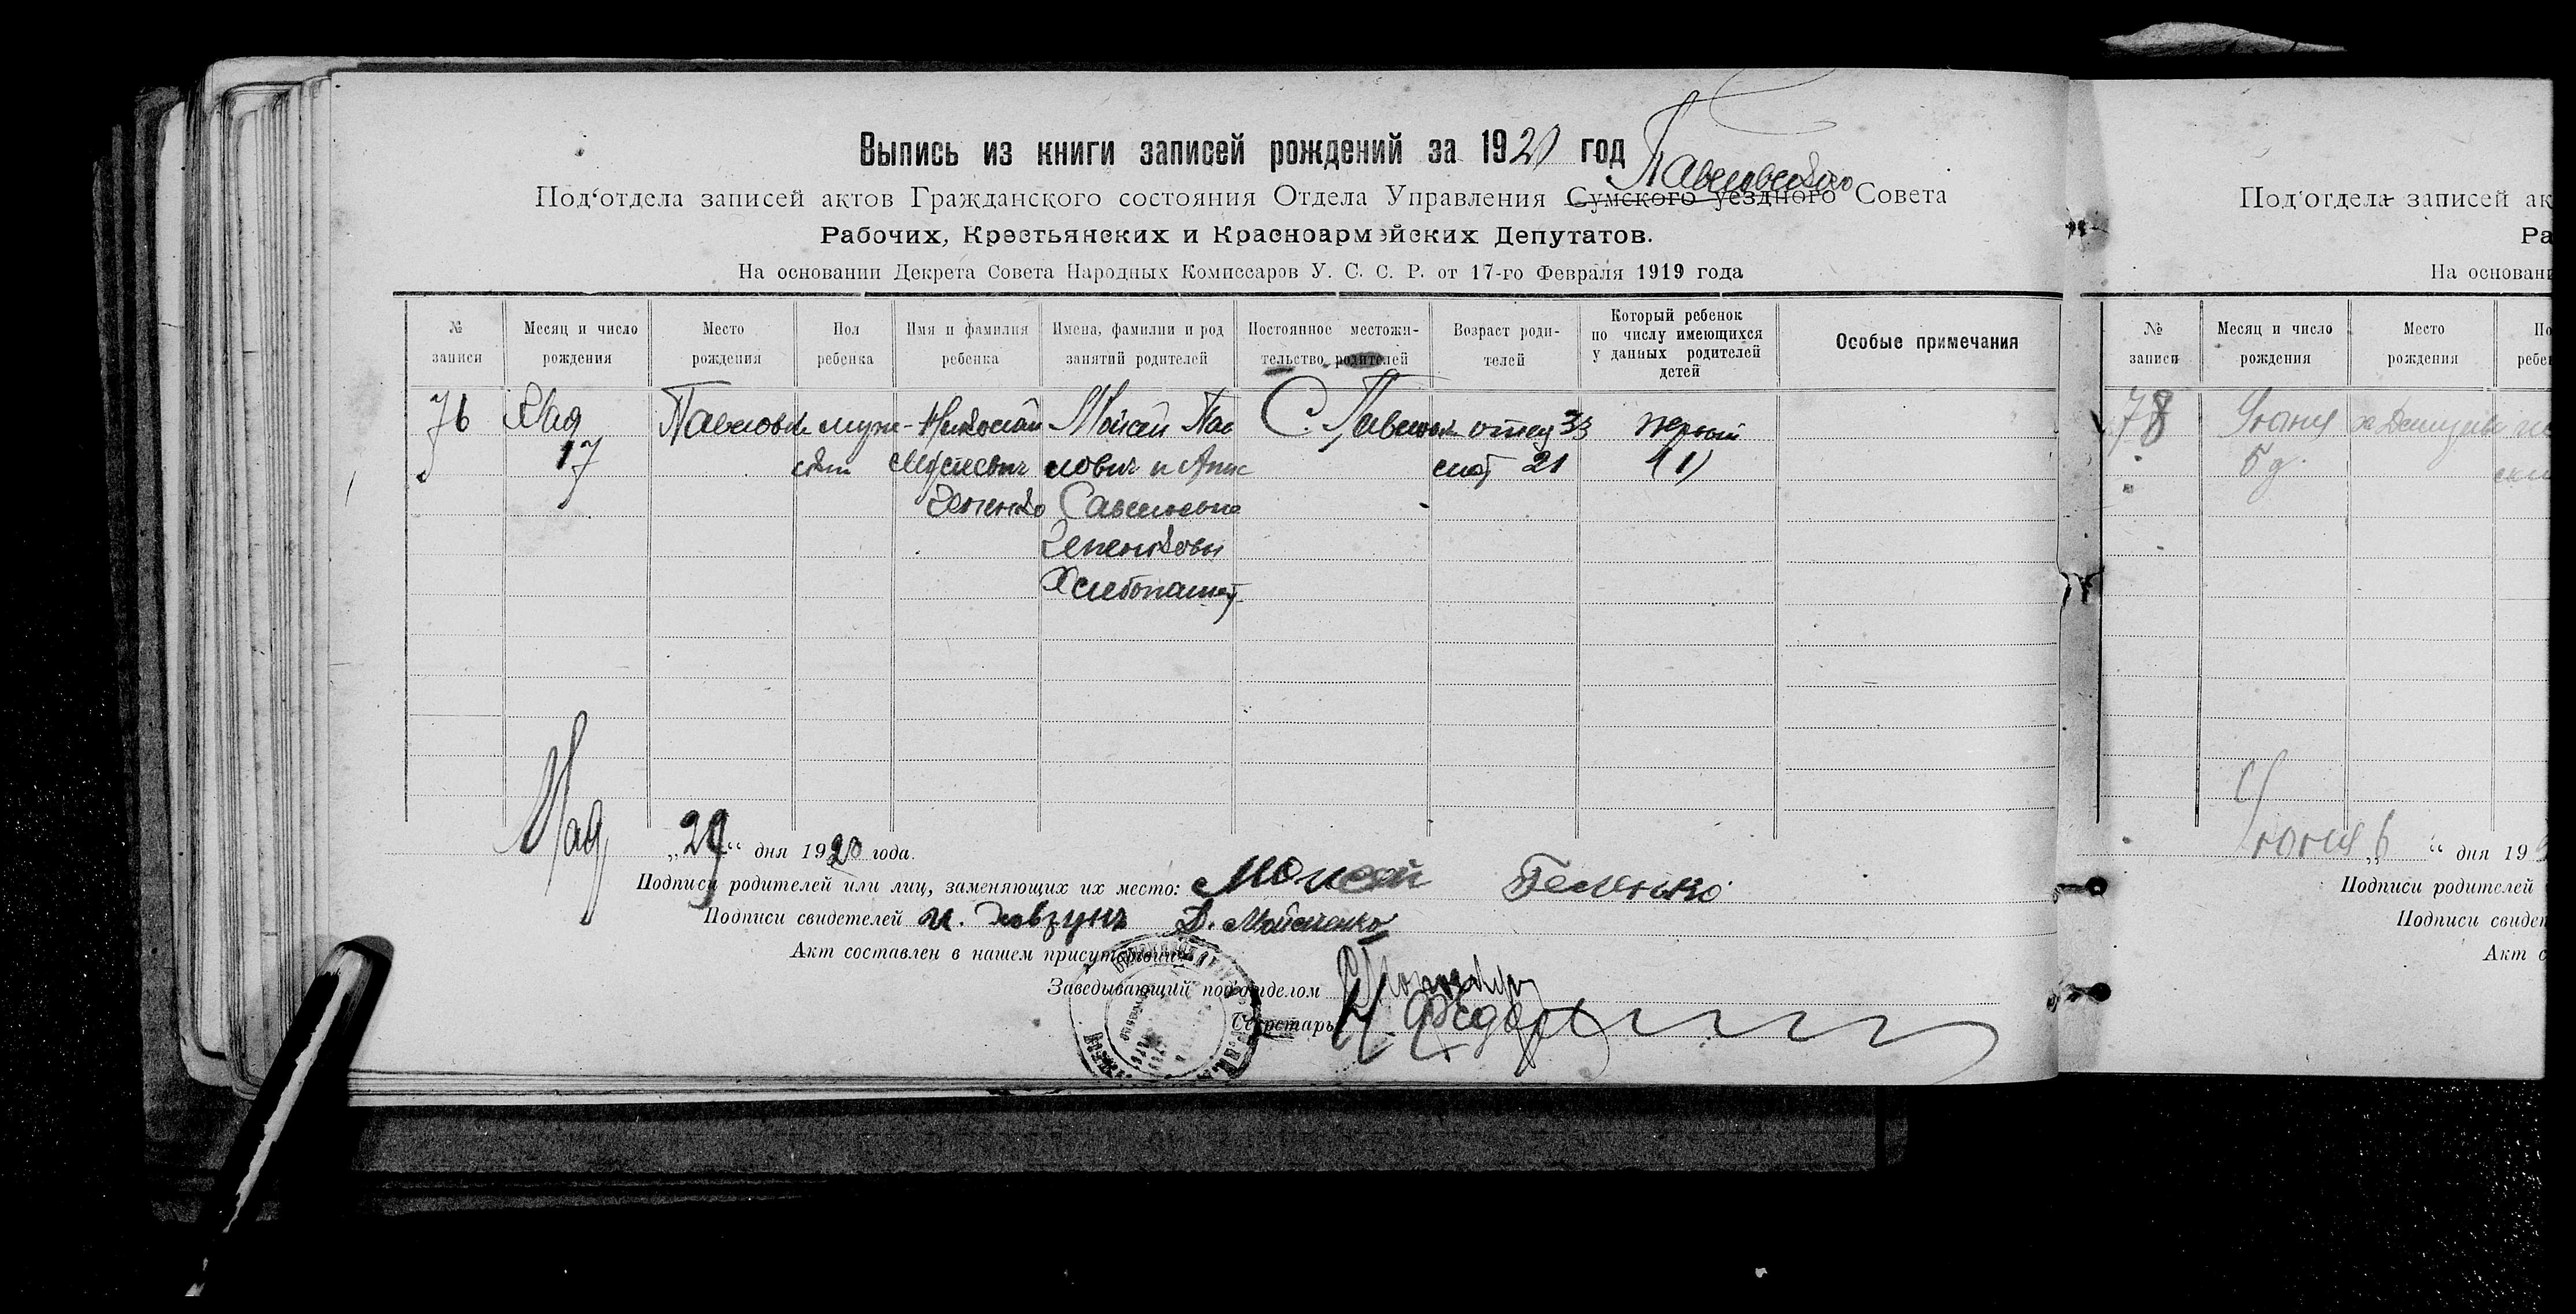 Выпись из книги записей рождений за 1920 год
Павловского
Под‘отдела записей актов Гражданского состояния Отдела Управления Сумского уездного Совета
Рабочих, Крестьянских и Красноармейских Депутатов.
На основании Декрета Совета Народных Комиссаров У. С. С. Р. от 17-го Февраля 1919 года
№ записи
Месяц и число рождения
Место рождения
Пол ребенка
Имя и фамилия ребенка
Имена, фамилии и род занятий родителей
Постоянное местожительство родителей
Возраст родителей
Который ребенок по числу имеющихся у данных родителей детей
Особые примечания
76
Мая
17
Павловка
муж-
ской
Николай
Мойсеевич
Мойсей Пав
лович и
Савельевна
Хлебопашец
С. Павловка
отец 33
мат 21
первый
(1)
Мая „29“ дня 1920 года.
Подписи родителей или лиц, заменяющих их место: Моисей
Подписи свидетелей и. Ховзунъ Д. Мойсеенко
Акт составлен в нашем присутствии:
Заведывающий подотделом
Секретарь
Под‘отдела записей ак
Ра
На основани
№ записи
Месяц и число рождения
Место рождения
По
ребе
78
Июня
5 д.
Июня „6“ дня 19
Подписи родителей
Подписи свидет
Акт с